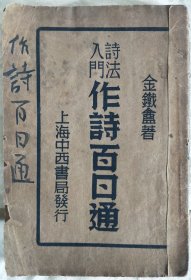 金鐵盦著
詩法入門
作詩百日通
上海中西書局發行
作詩百日通